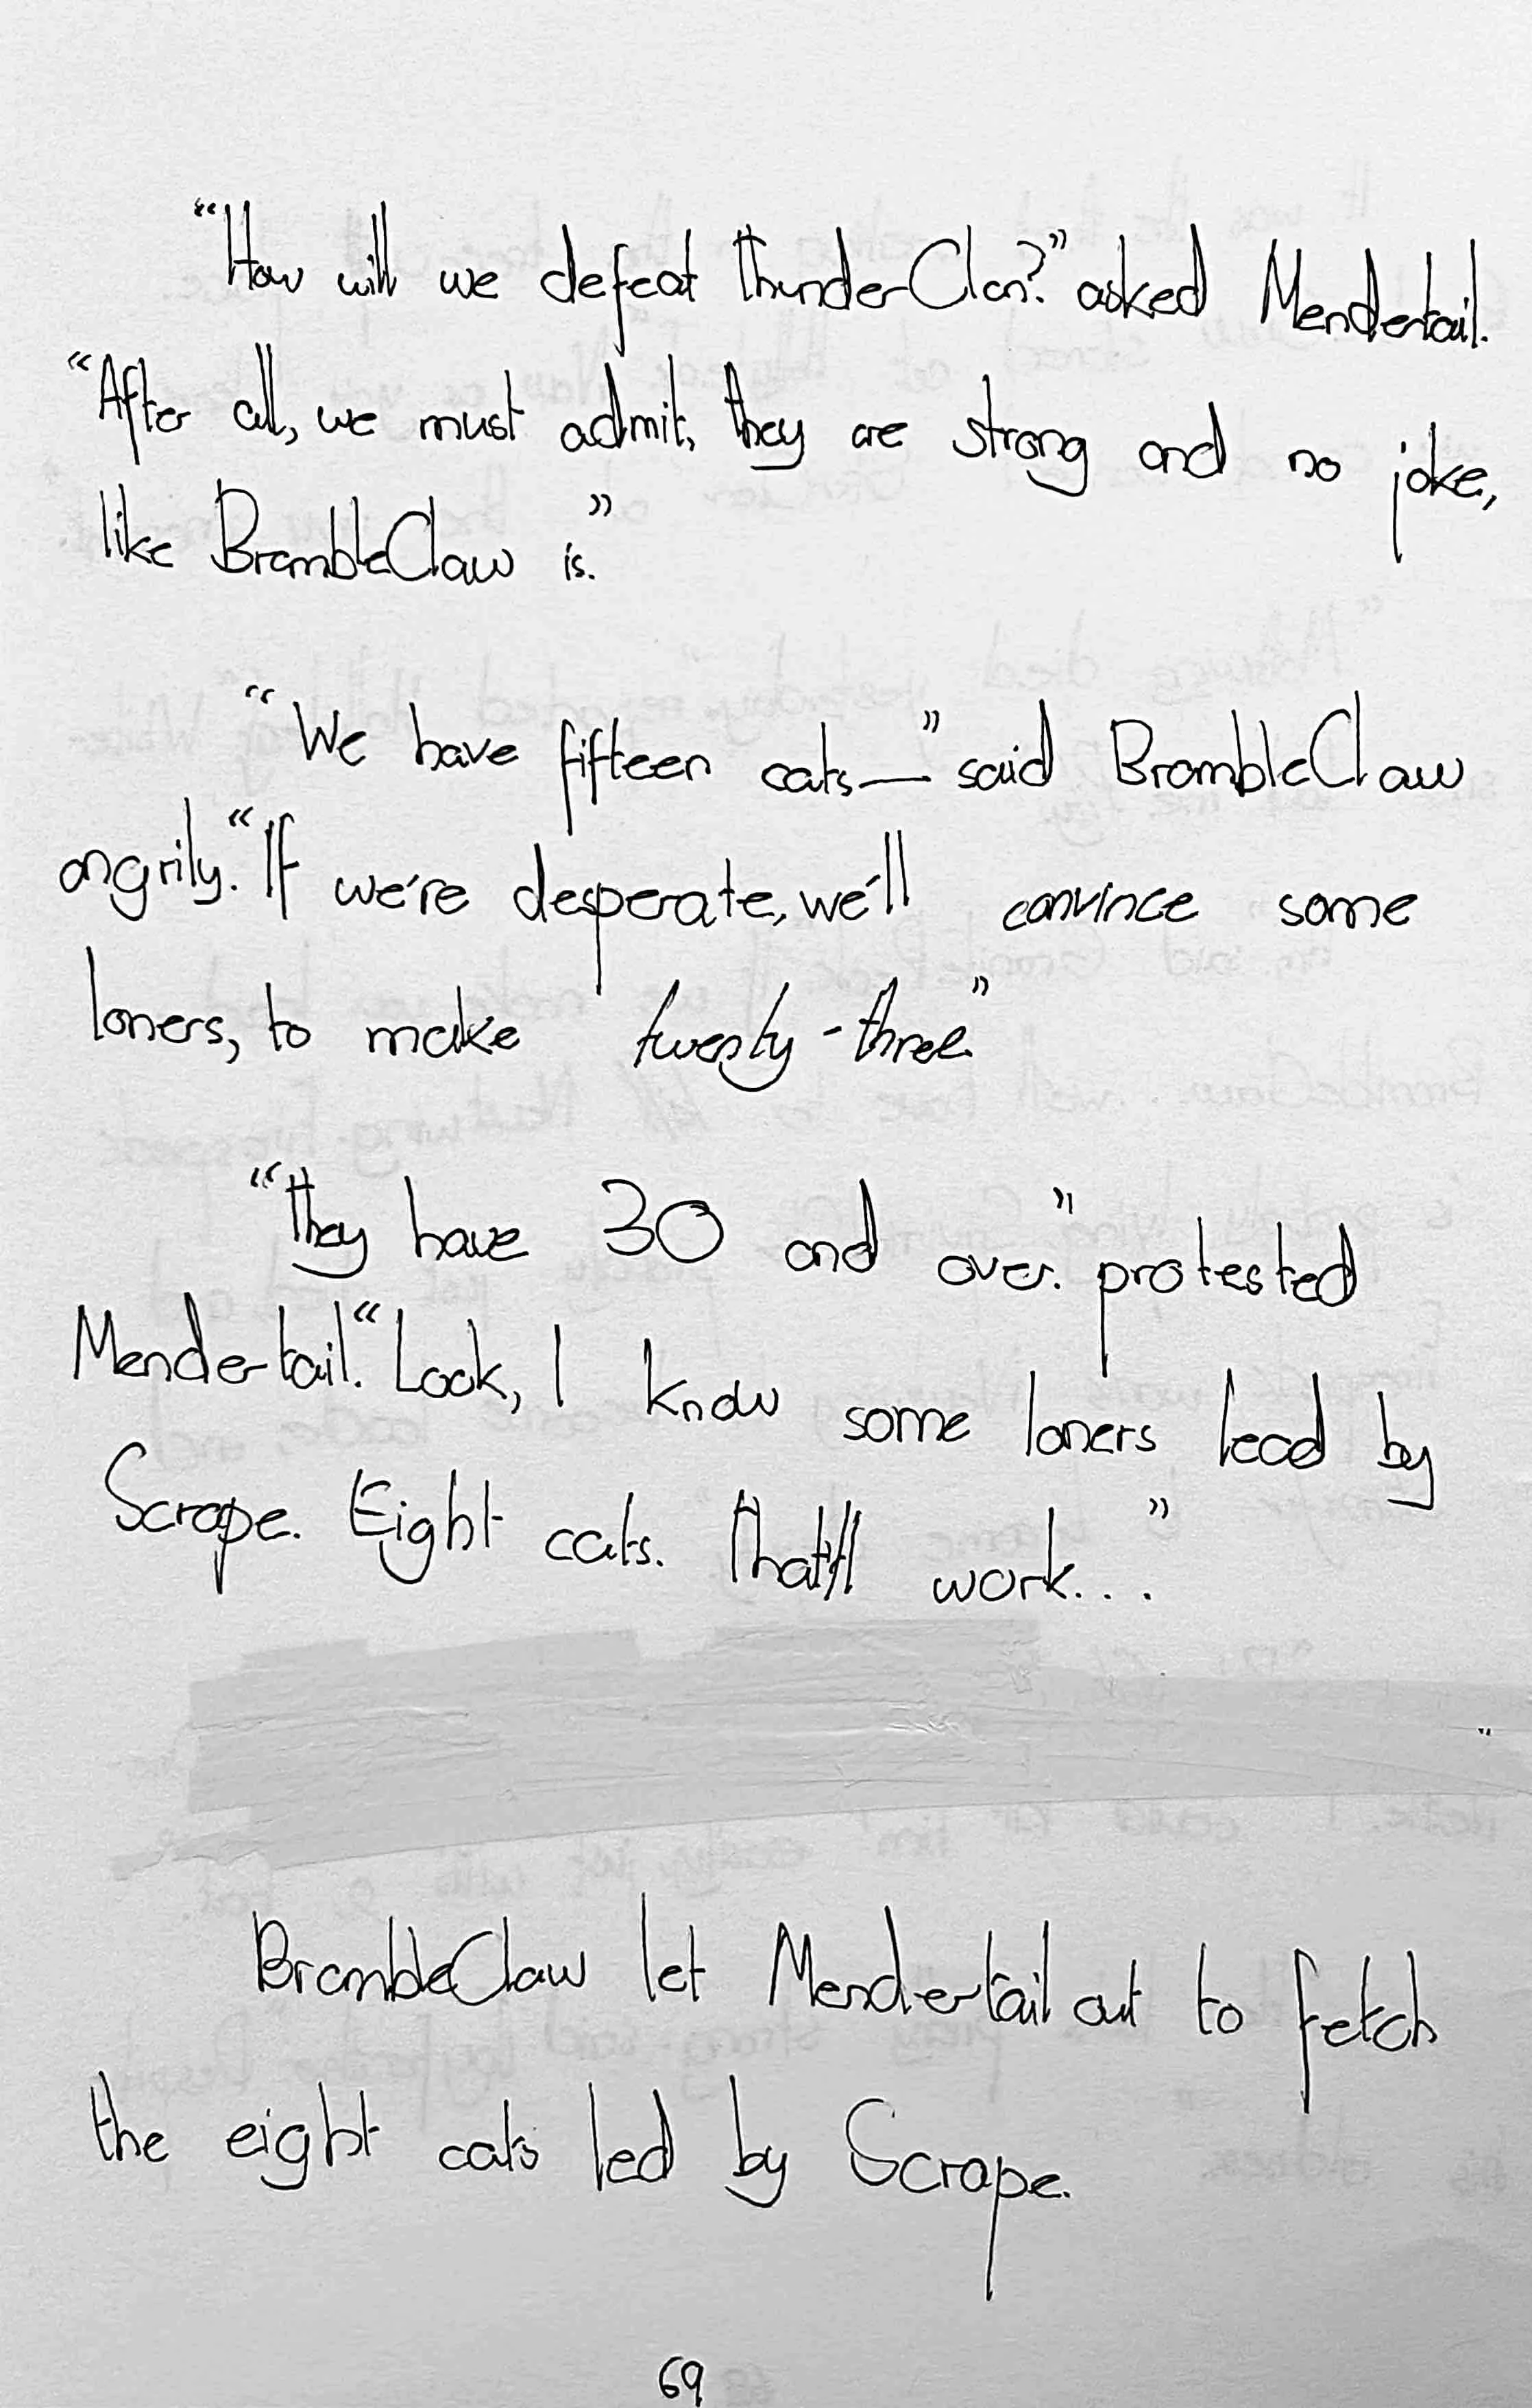 “How will we defeat ThunderClan?” asked Mendertail.
“After all, we must admit, they are strong and no joke,
like BrambleClaw is.”
“We have fifteen cats—” said BrambleClaw
angrily. “If we're desperate, we'll convince some
loners, to make twenty-three.”
“They have 30 and over.” protested
Mendertail. “Look, I know some loners lead by
Scrape. Eight cats. That'll work...”
BrambleClaw let Mendertail out to fetch
the eight cats led by Scrape.
69